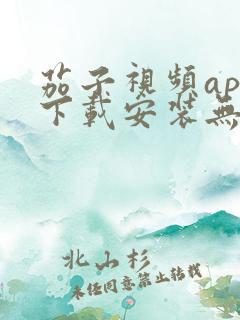 茄子視頻ap
下載安裝無
北山杉
未任同意禁止转载